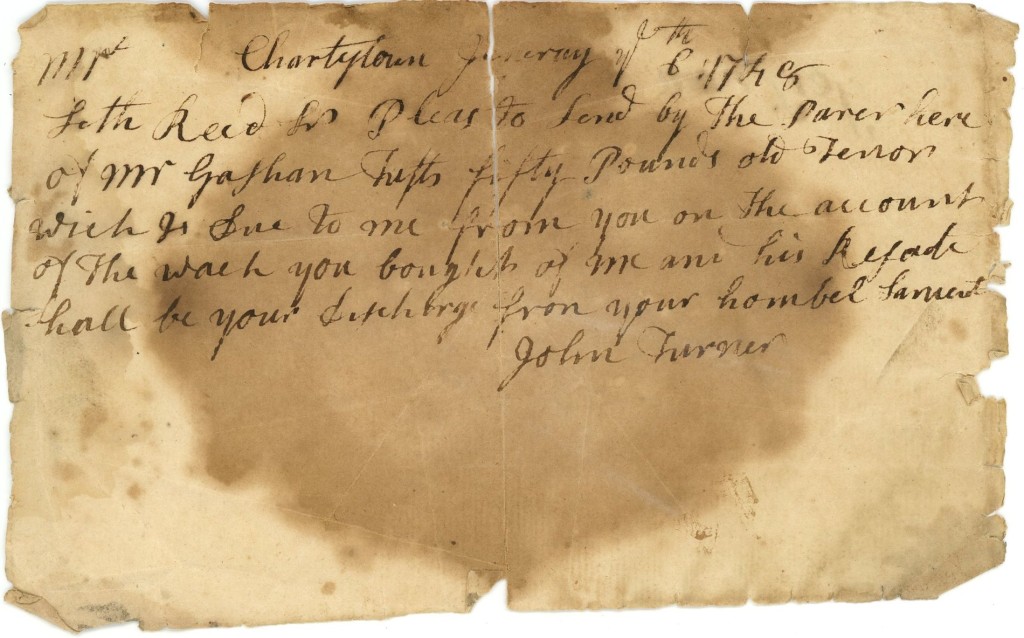 Mr Charlstown Jeneray ye 6th 1748
Seth Reed Sr Pleas to Send by The barer here
of Mr Gashan Tufts fifty Pounds old Tenor
wich Is Due to me from you on The account
of The wach you bought of me and his Resade
shall be your discharge from your hombel Sarvent
John Turner